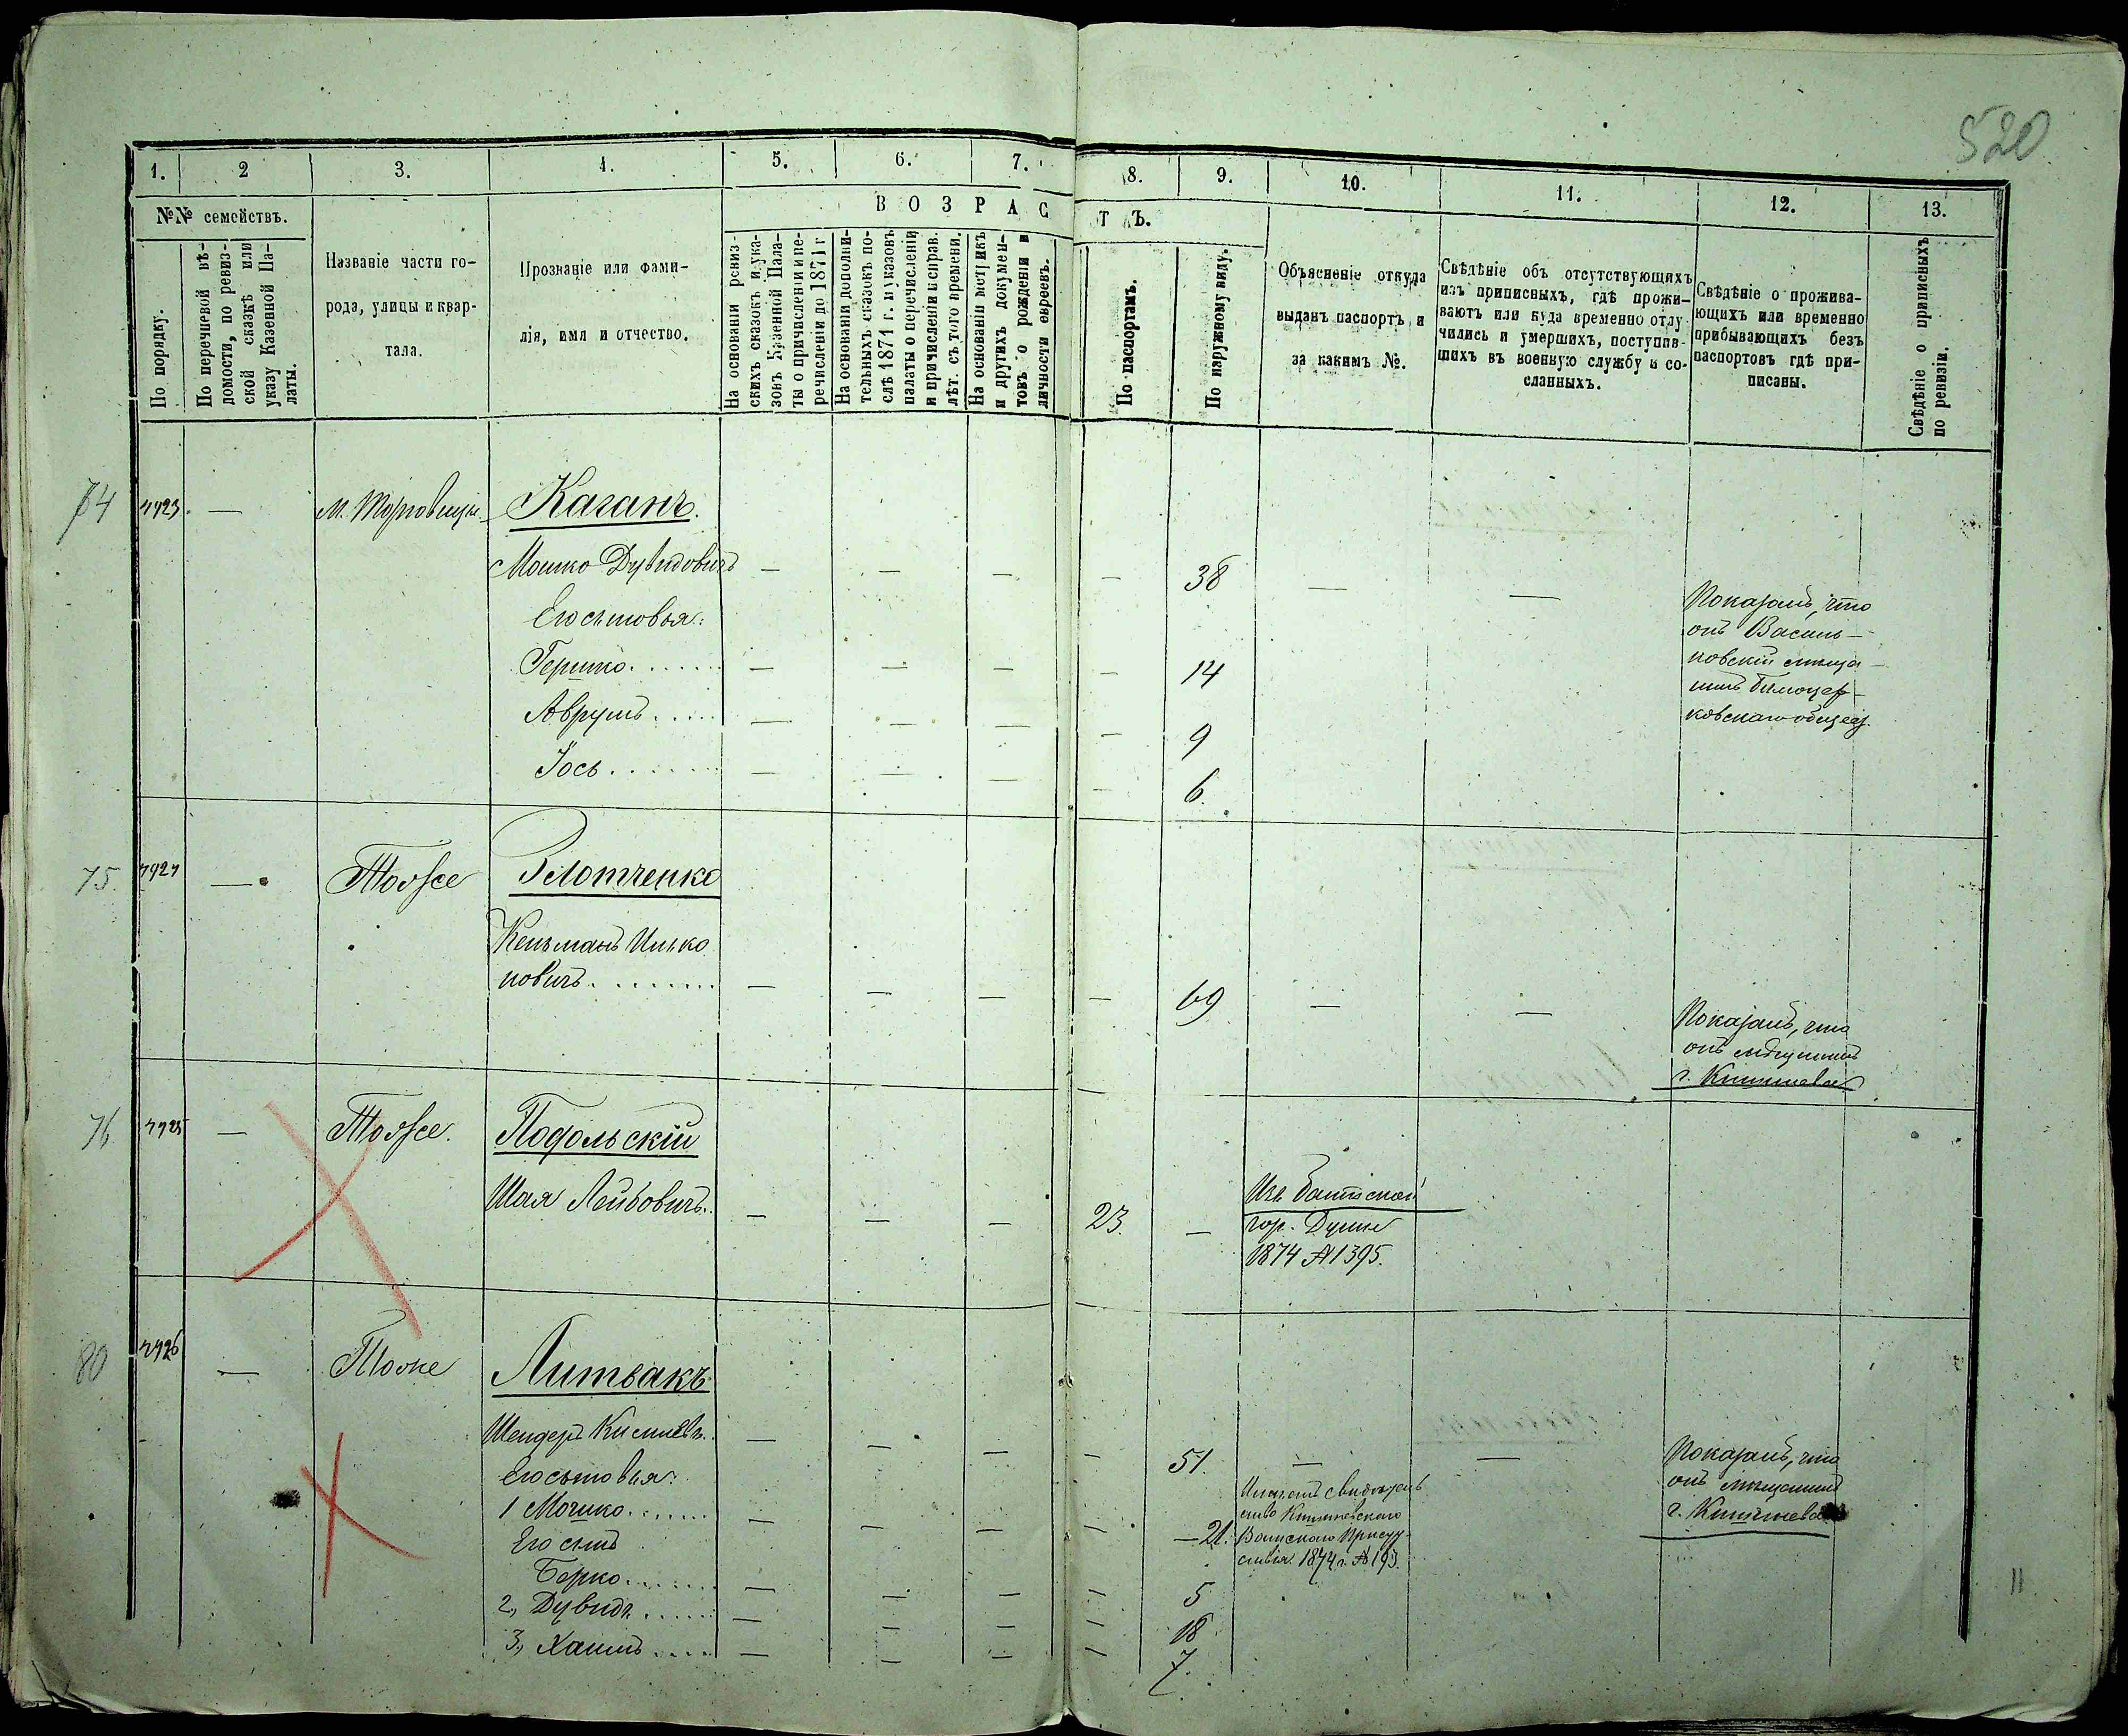 520
1. 2 3. 4. 5. 6. 7. 8. 9. 10. 11. 12. 13.
№№ семействъ.
В О З Р А С Т Ъ.
По порядку.
По перечневой вѣ-
домости, по ревиз-
ской сказкѣ или
указу Казенной Па-
латы.
Названіе части го-
рода, улицы и квар-
тала.
Прозваніе или фами-
лія, имя и отчество.
На основаніи ревиз-
скихъ сказокъ и ука-
зовъ Казенной Пала-
ты о причисленіи и пе-
речисленіи до 1871 г
На основаніи дополни-
тельныхъ сказокъ по-
слѣ 1871 г. и указовъ
палаты о перечисленіи
и причисленіи и справ.
лѣт. съ того времени.
На основаніи метрикъ
и другихъ докумен-
товъ о рожденіи и
личности евреевъ.
По паспортамъ.
По наружному виду.
Объясненіе откуда
выданъ паспортъ и
за какимъ №.
Свѣдѣніе объ отсутствующихъ
изъ приписныхъ, гдѣ прожи-
ваютъ или куда временно отлу-
чились и умершихъ, поступив-
шихъ въ военную службу и со-
сланныхъ.
Свѣдѣніе о прожива-
ющихъ или временно
прибывающихъ безъ
паспортовъ гдѣ при-
писаны.
Свѣдѣніе о приписныхъ
по ревизіи.
74 — М. Торговица Каганъ.
Мошко Дувидовичъ — — — — 38 — —
Его сыновья:
Гершко — — — — 14
Аврумъ — — — — 9
Іось — — — — 6.
Показалъ, что
онъ Василь-
ковскій мѣща-
нинъ Бѣлоцер-
ковскаго общес.
75. — Тоже Золотченко
Кельманъ Илько
новичъ — — — — 69 — —
Показалъ, что
онъ мѣщанинъ
г. Кишинева
76 — Тоже. Подольскій
Шая Лейбовичъ. — — — 23. —
Изъ Балтской
гор. Думы
1874 № 1395.
80 — Тоже Литвакъ
Шендеръ Кисилевъ. — — — — 51. — —
Его сыновья:
1 Мошко — — — — 21.
Его сынъ
Берко — — — — 5
2, Дувидъ — — — — 18
3, Хаимъ — — — — 7.
Имѣетъ свидѣтель
ство Кишиневскаго
Воинскаго Присут-
ствія 1874 г. № 193.
Показалъ, что
онъ мѣщанинъ
г. Кишинева